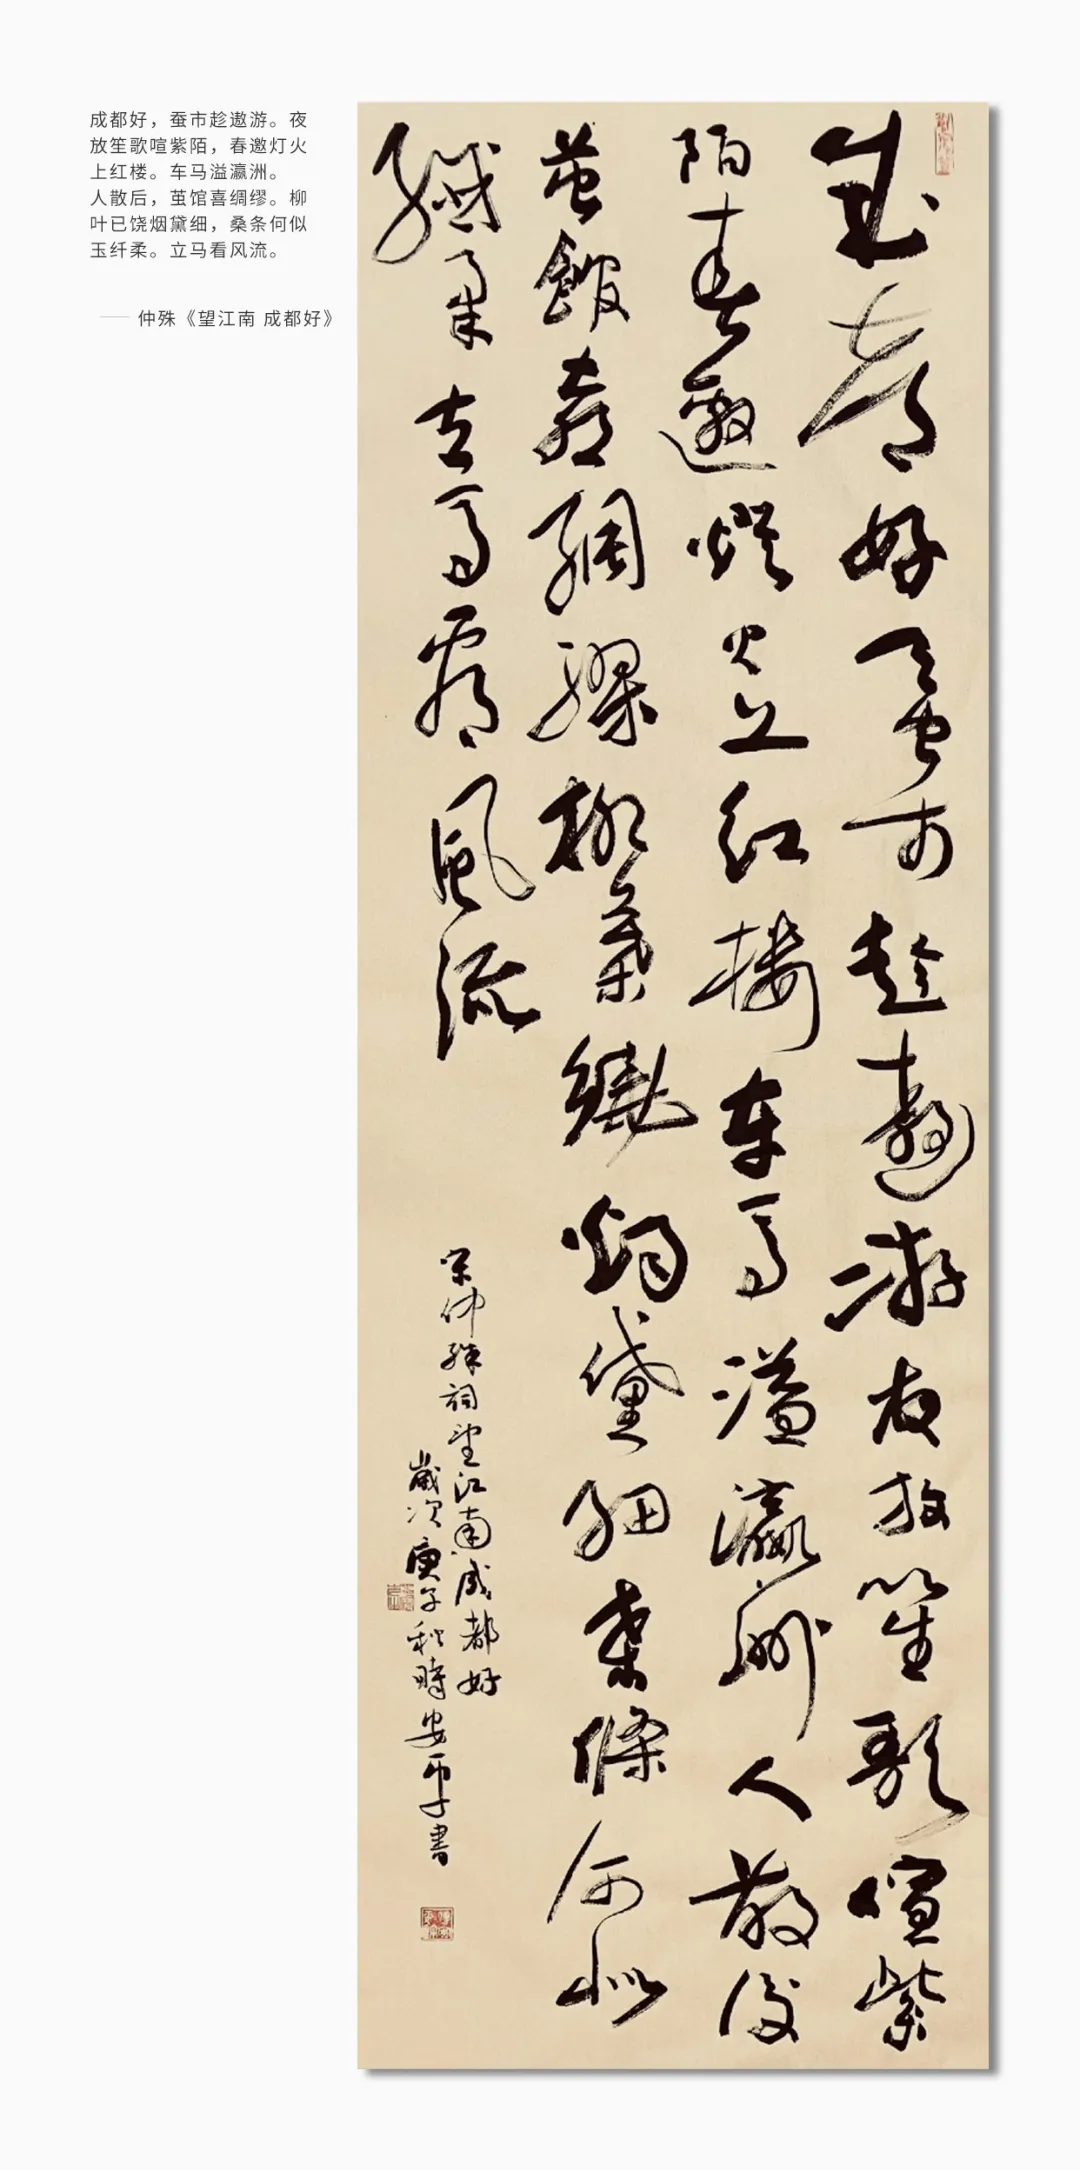 成都好，蚕市趁遨游。夜
放笙歌喧紫陌，春邀灯火
上红楼。车马溢瀛洲。
人散后，茧馆喜绸缪。柳
叶已饶烟黛细，桑条何似
玉纤柔。立马看风流。
—— 仲殊《望江南 成都好》
成都好蚕市趁遨游夜放笙歌喧紫
陌春邀燈火上红楼车马溢瀛洲人散後
茧館喜綢繆柳葉繞烟黛細桑條何似
纖柔立马看風流
宋仲殊詞望江南成都好
歲次庚子秋時安平書